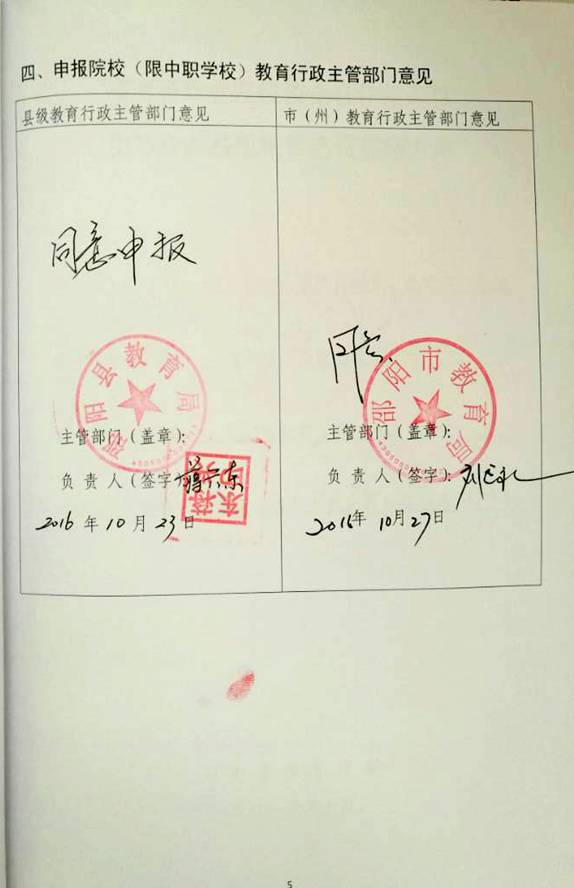 四、申报院校（限中职学校）教育行政主管部门意见
县级教育行政主管部门意见
同意申报
阳县教育局
主管部门（盖章）：
负责人（签字）
2016年10月23日
市（州）教育行政主管部门意见
同意
邵阳市教育局
主管部门（盖章）：
负责人（签字）：
2016年10月27日
5